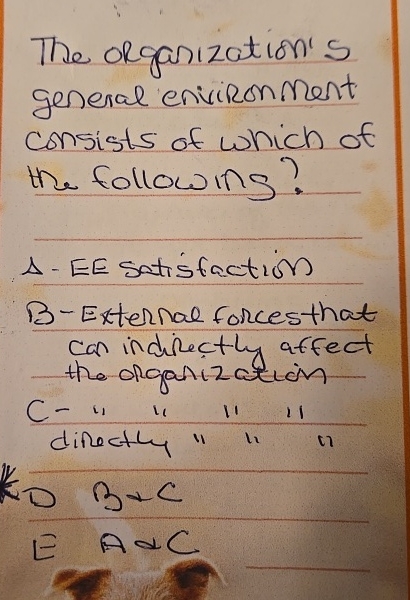 The organization's
general environment
consists of which of
the following?
A - EE satisfaction
B - External forces that
can indirectly affect
the organization
C - " " " "
directly " " "
* D B & C
E A & C